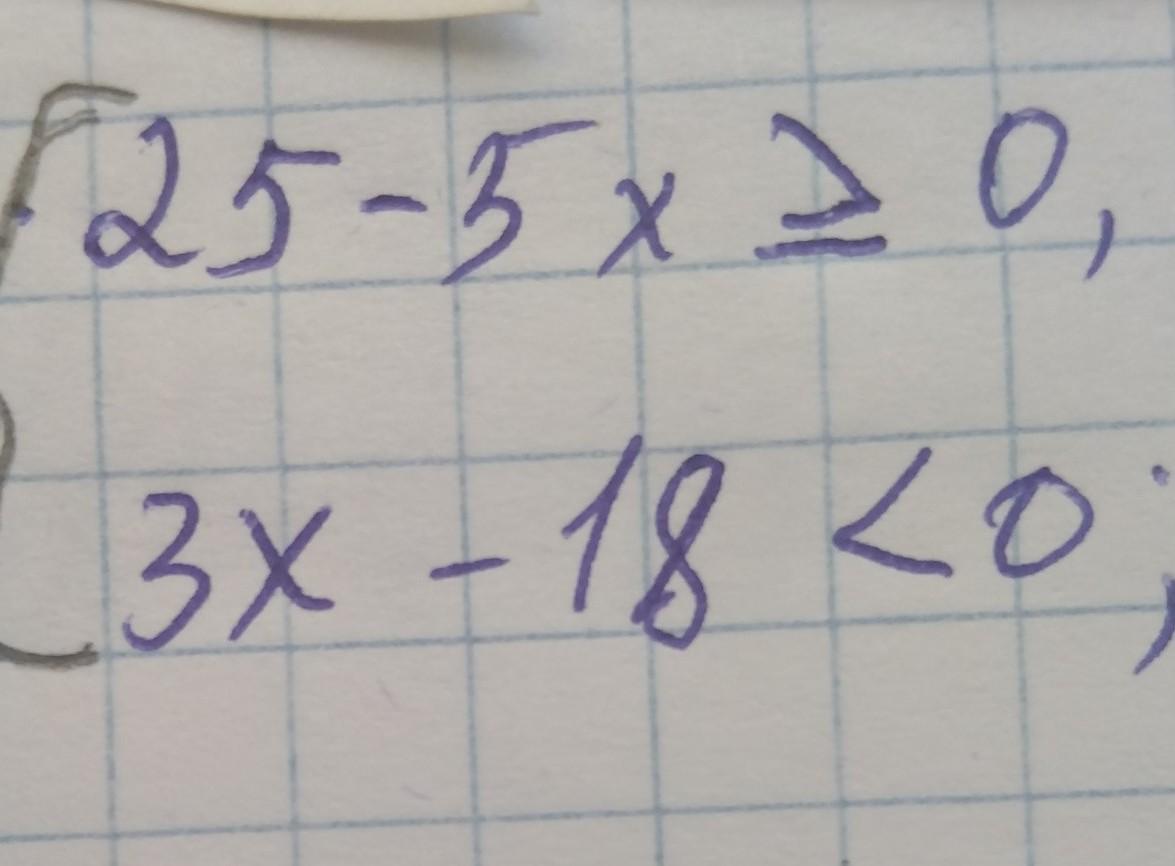 25 - 5x ≥ 0,
3x - 18 < 0;